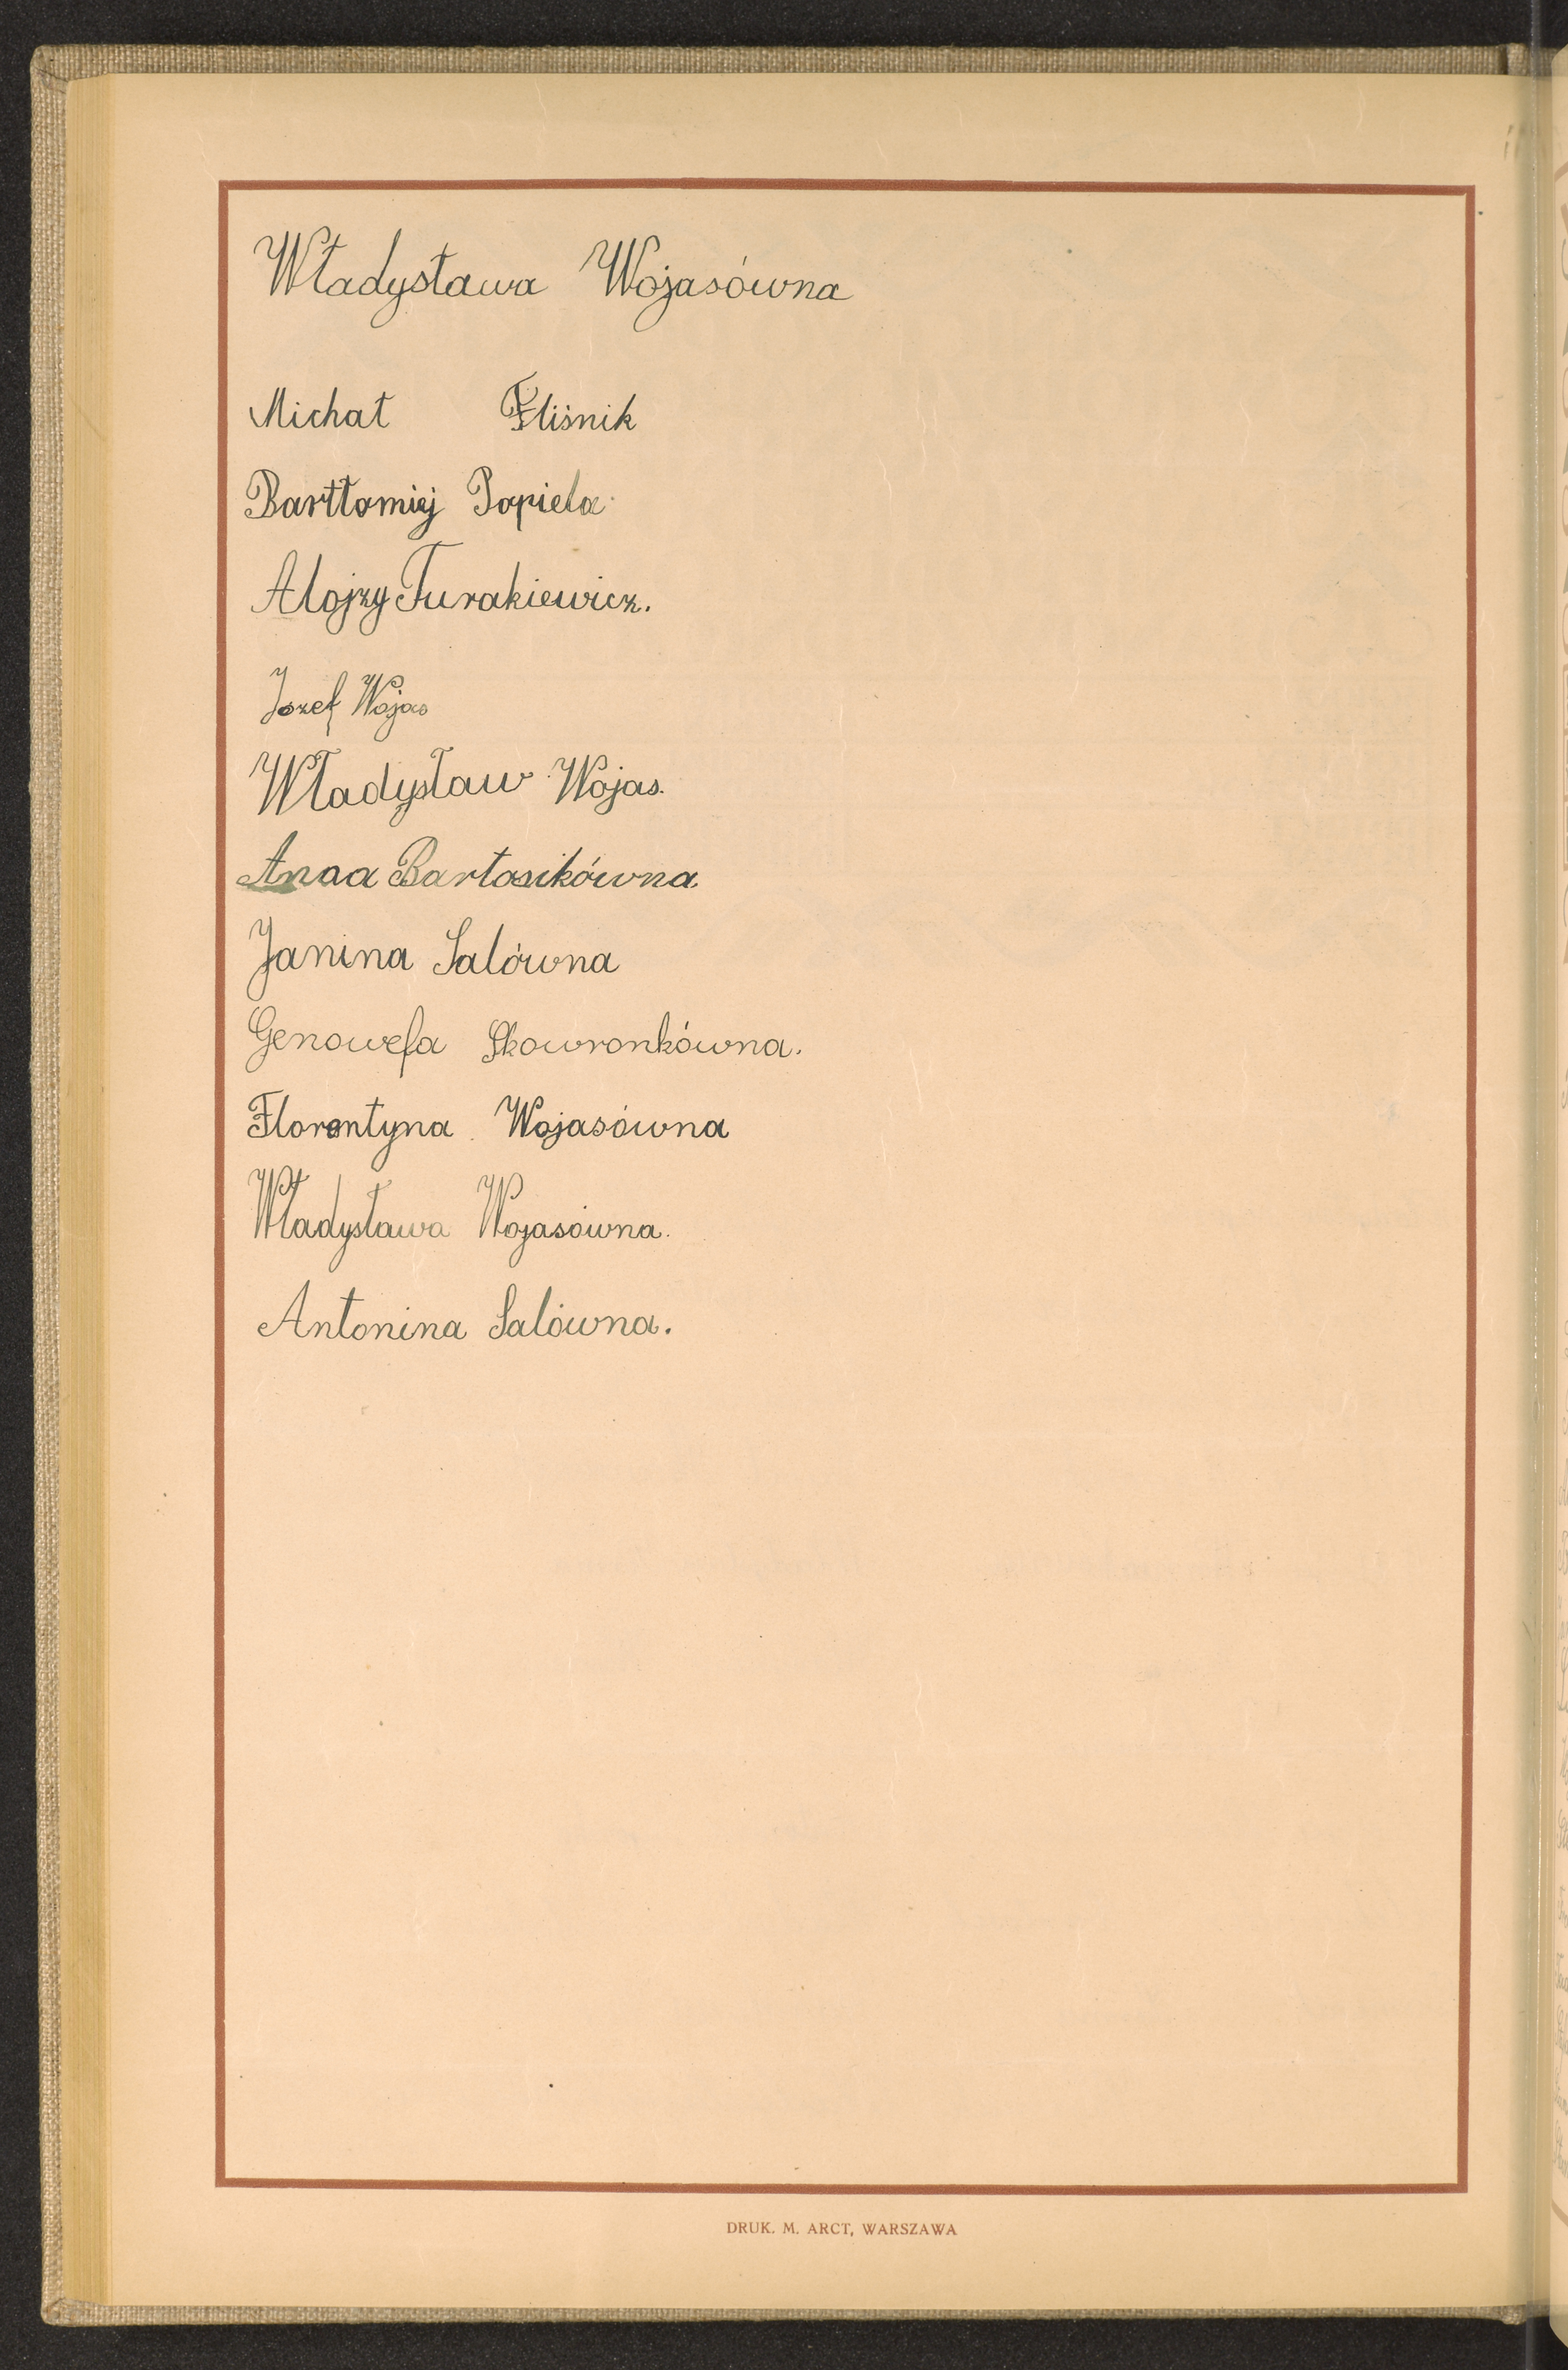 Władysława Wojasówna
Michał Fliśnik
Bartłomiej Papiela
Alojzy Turakiewicz.
Jozef Wojas
Władysław Wojas.
Anna Bartosikówna
Janina Salówna
Genowefa Skowronkówna.
Florentyna Wojasówna
Władysława Wojasówna.
Antonina Salówna.
DRUK. M. ARCT, WARSZAWA